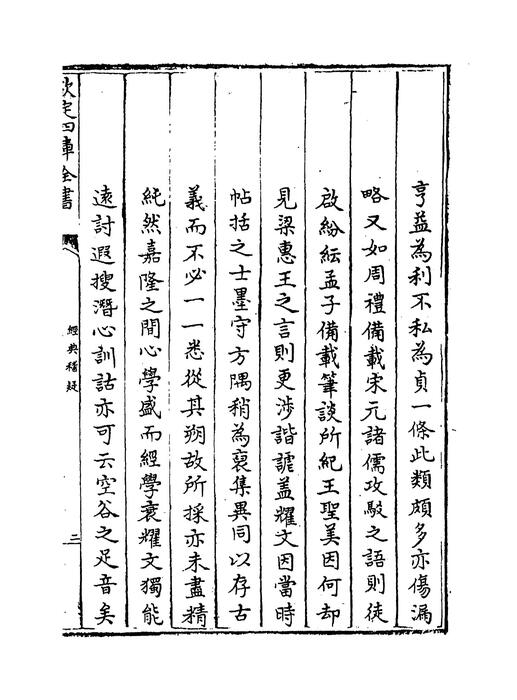 亨益為利不私為貞一條此類頗多亦傷漏
略又如周禮備載宋元諸儒攻駁之語則徒
啟紛紜孟子備載筆談所紀王聖美因何却
見梁惠王之言則更涉諧謔盖耀文因當時
帖括之士墨守方隅稍為裒集異同以存古
義而不必一一悉從其朔故所採亦未盡精
純然嘉隆之間心學盛而經學衰耀文獨能
遠討遐搜潛心訓詁亦可云空谷之足音矣
欽定四庫全書
經典稽疑
二